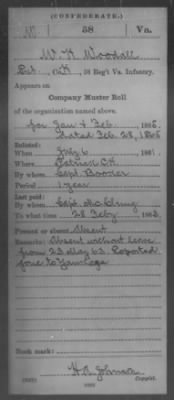 (CONFEDERATE.)
W 58 Va.
Wm K. Woodall
Co. , 58 Reg't Va. Infantry.
Appears on
Company Muster Roll
of the organization named above,
for Jan & Feb, 186 .
dated Feb 28, 186
Enlisted:
When July 6, 186 .
Where Patrick C.H.
By whom Capt. Booker
Period 1 year
Last paid:
By whom Capt.
To what time 28 Feby 1863.
Present or absent Absent
Remarks: Absent without leave
from 23 May 63. Reported
gone to
Book mark:
H. A. Johnson
Copyist.